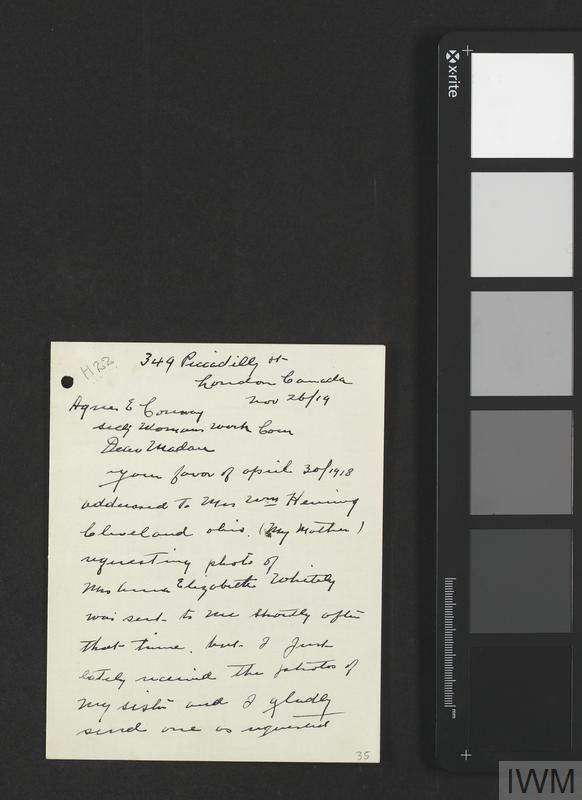 H22
349 Piccadilly St
London Canada
Nov 26/19
Agnes E Conway
Secy Womans Work Com
Dear Madam
Your favor of april 30/1918
addressed to Mrs Wm Hening
Cleveland ohio. (My Mother)
requesting photo of
Mrs Anna Elizabeth Whitely
was sent to me shortly after
that time. but I Just
lately received the photos of
my sister and I gladly
send one as requested
35
x-rite
mm
IWM